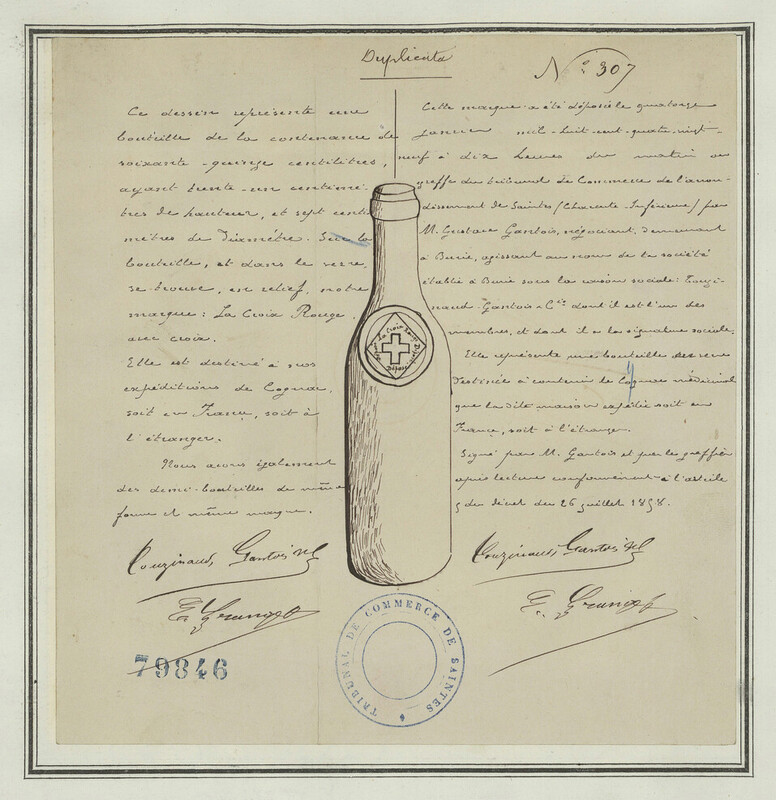 Duplicata
N° 307
Ce dessin représente une
bouteille de la contenance de
soixante-quinze centilitres,
ayant trente-un centimè-
tres de hauteur, et sept centi
mètres de diamètre. Sur la
bouteille, et dans le verre,
se trouve, en relief, notre
marque: La Croix Rouge,
avec croix.
Elle est destinée à nos
expéditions de Cognac,
soit en France, soit à
l'étranger.
Nous avons également
des demi-bouteilles de même
forme et même marque.
Cette marque a été déposée le quatorze
janvier mil-huit-cent-quatre-vingt-
neuf à dix heures du matin au
greffe du tribunal de Commerce de l'arron-
dissement de Saintes (Charente-Inférieure) par
M. Gustave Gantois, négociant, demeurant
à Burie, agissant au nom de la société
établie à Burie sous la raison sociale: Couzi-
naud-Gantois & Cie dont il est l'un des
membres, et dont il a la signature sociale.
Elle représente une bouteille de verre
destinée à contenir le Cognac médicinal
que la dite maison expédie soit en
France, soit à l'étranger.
Signé par M. Gantois et par le greffier
après lecture conformément à l'article
5 du décret du 26 juillet 1858.
La Croix Rouge
Déposé
Couzinaud, Gantois &
Couzinaud, Gantois &
TRIBUNAL DE COMMERCE DE SAINTES
79846